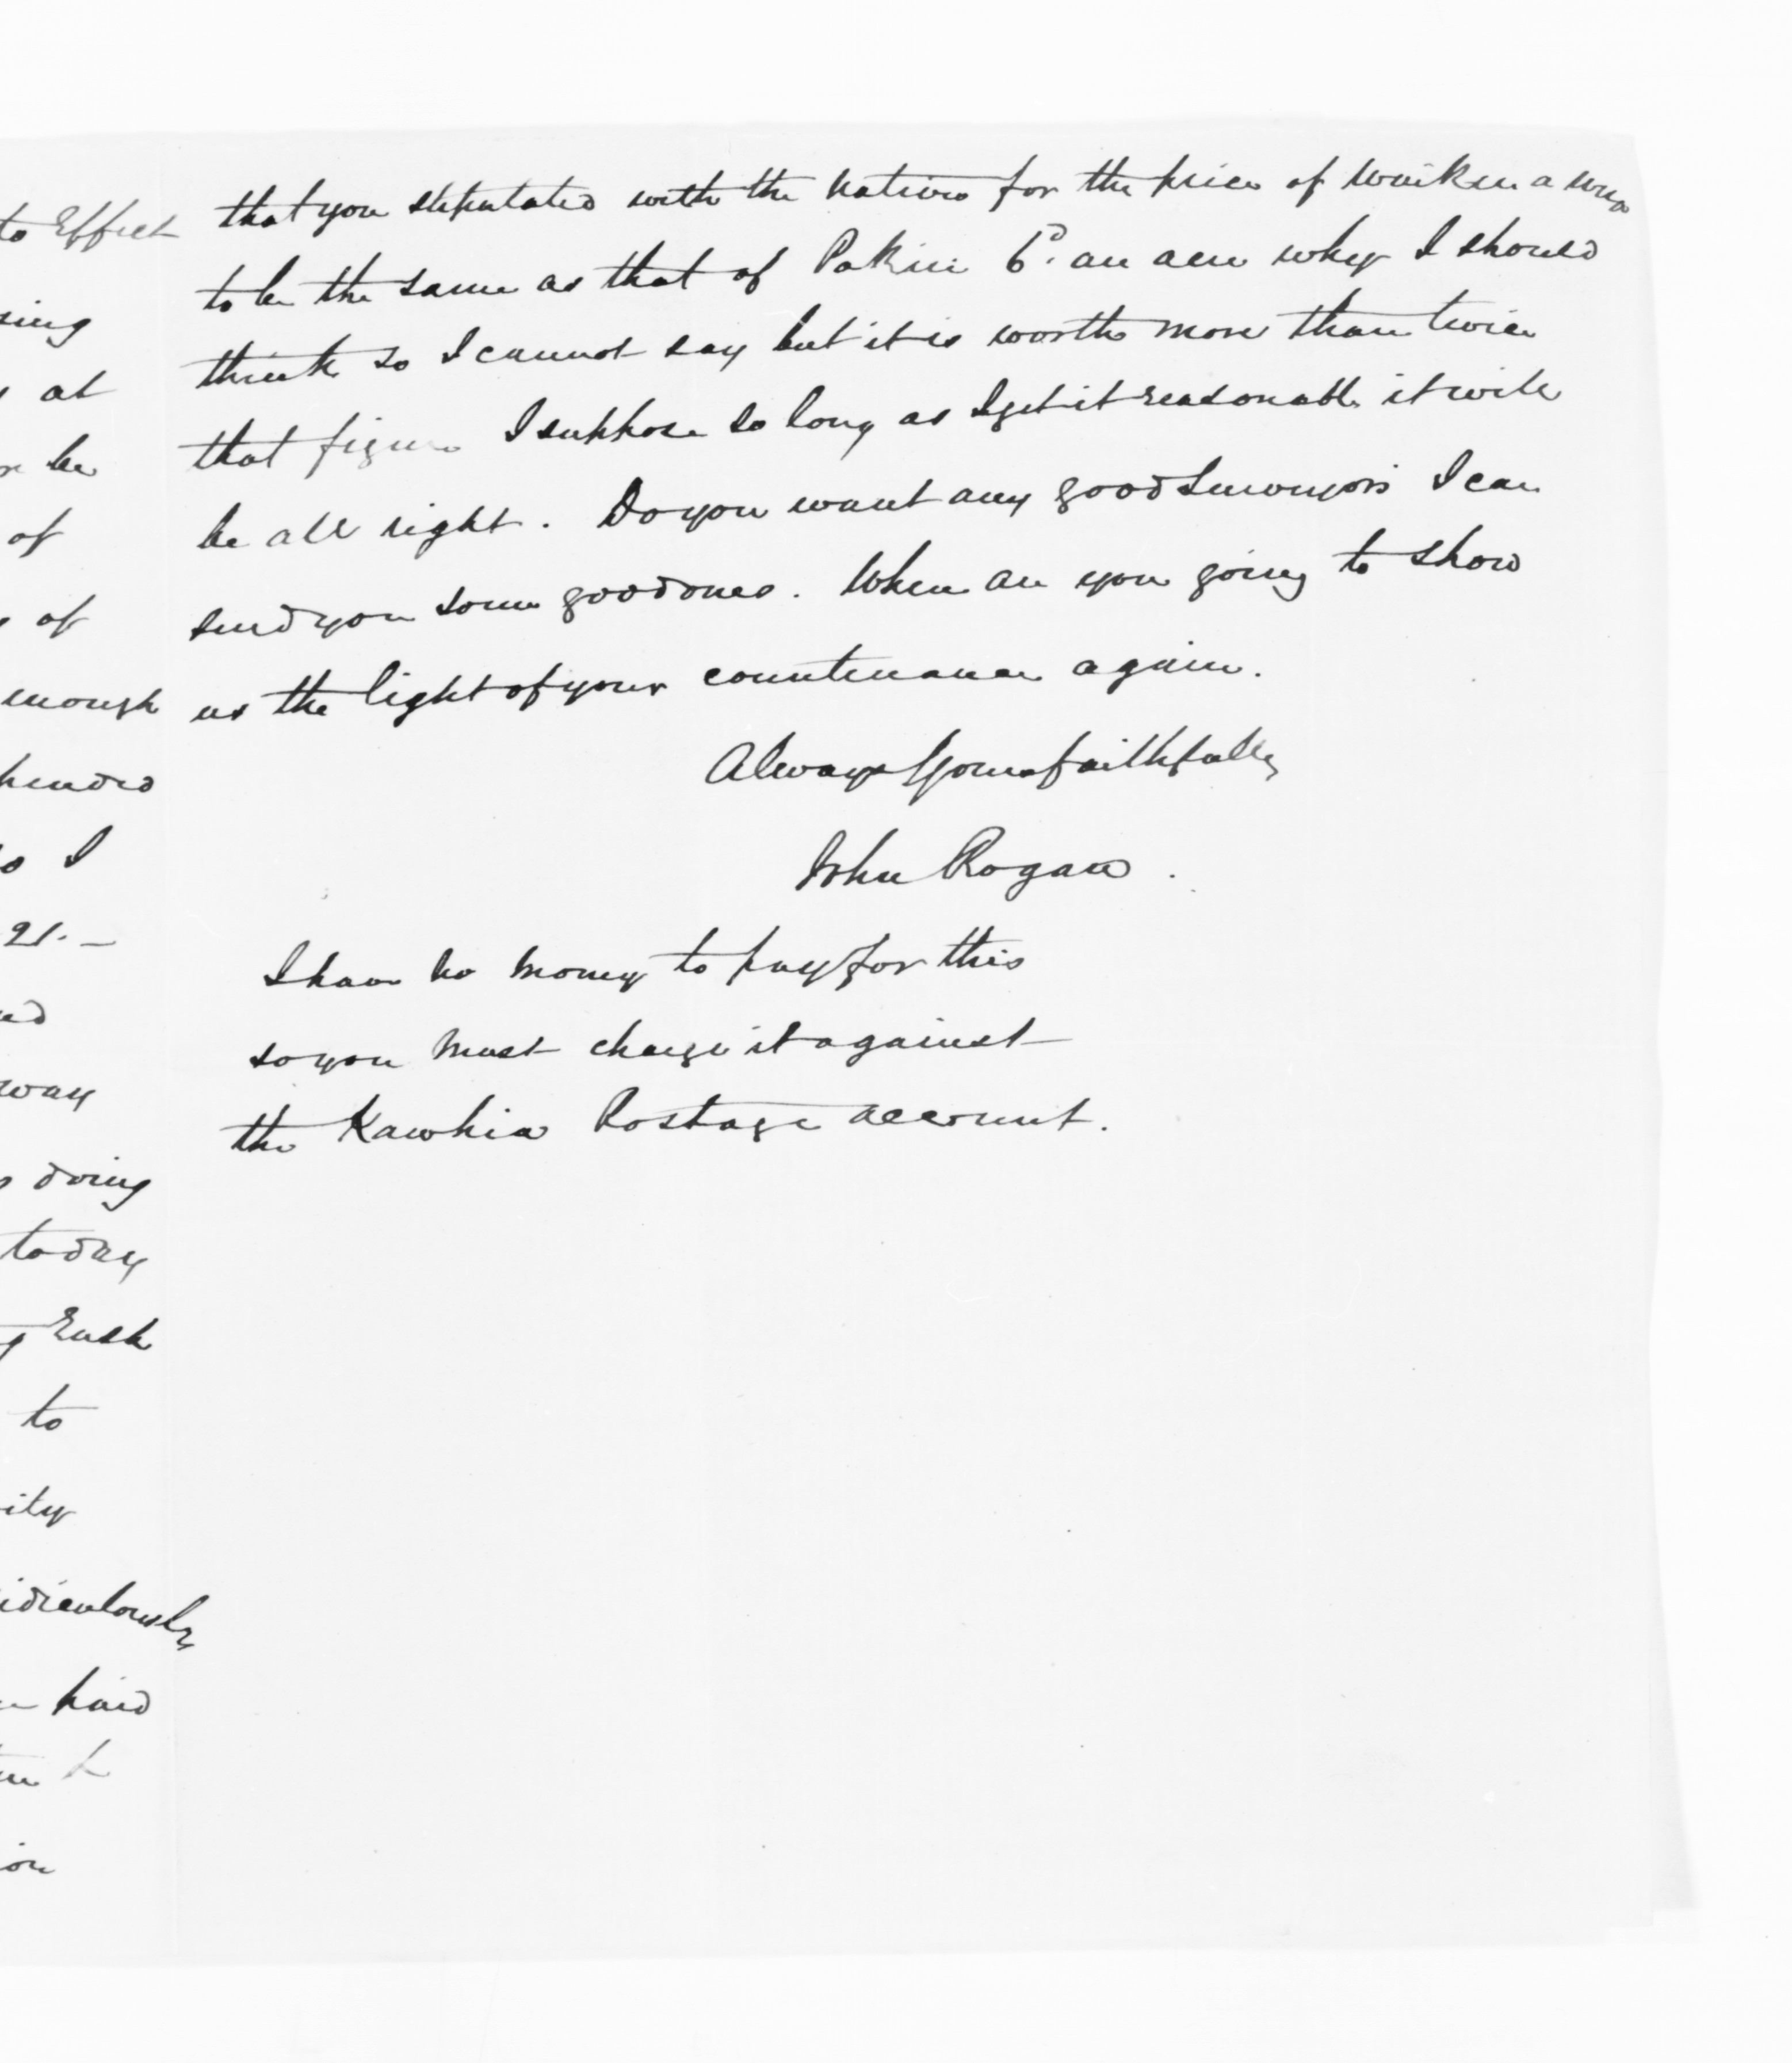 to Effect
sing
at
be
of
of
enough
I
21. —
way
doing
today
to
paid
that you stipulated with the natives for the price of
to be the same as that of Pakiri 6d. an acre why I should
think so I cannot say but it is worth more than twice
that figure I suppose so long as I get it reasonable it will
be all right. Do you want any good Surveyors I can
send you some good ones. When are you going to show
us the light of your countenance again.
Always Yours faithfully
John Rogan.
I have no money to pay for this
so you must charge it against
the Kawhia Postage account.